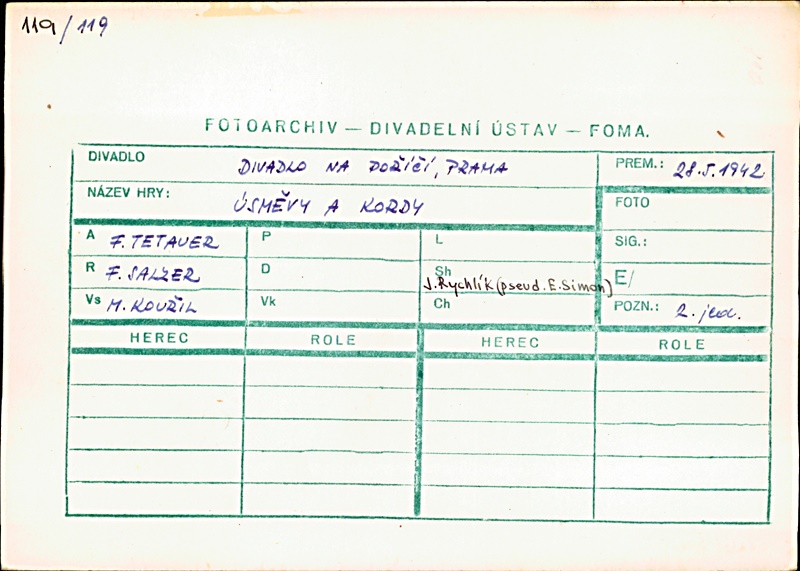 119/119
FOTOARCHIV — DIVADELNÍ ÚSTAV — FOMA.
DIVADLO DIVADLO NA POŘÍČÍ, PRAHA PREM.: 28.5.1942
NÁZEV HRY: ÚSMĚVY A KORDY FOTO
A F. TETAUER P L SIG.:
R F. SALZER D Sh J. Rychlík (pseud. E. Simon) E/
Vs M. KOUŘIL Vk Ch POZN.: 2. jed.
HEREC ROLE HEREC ROLE